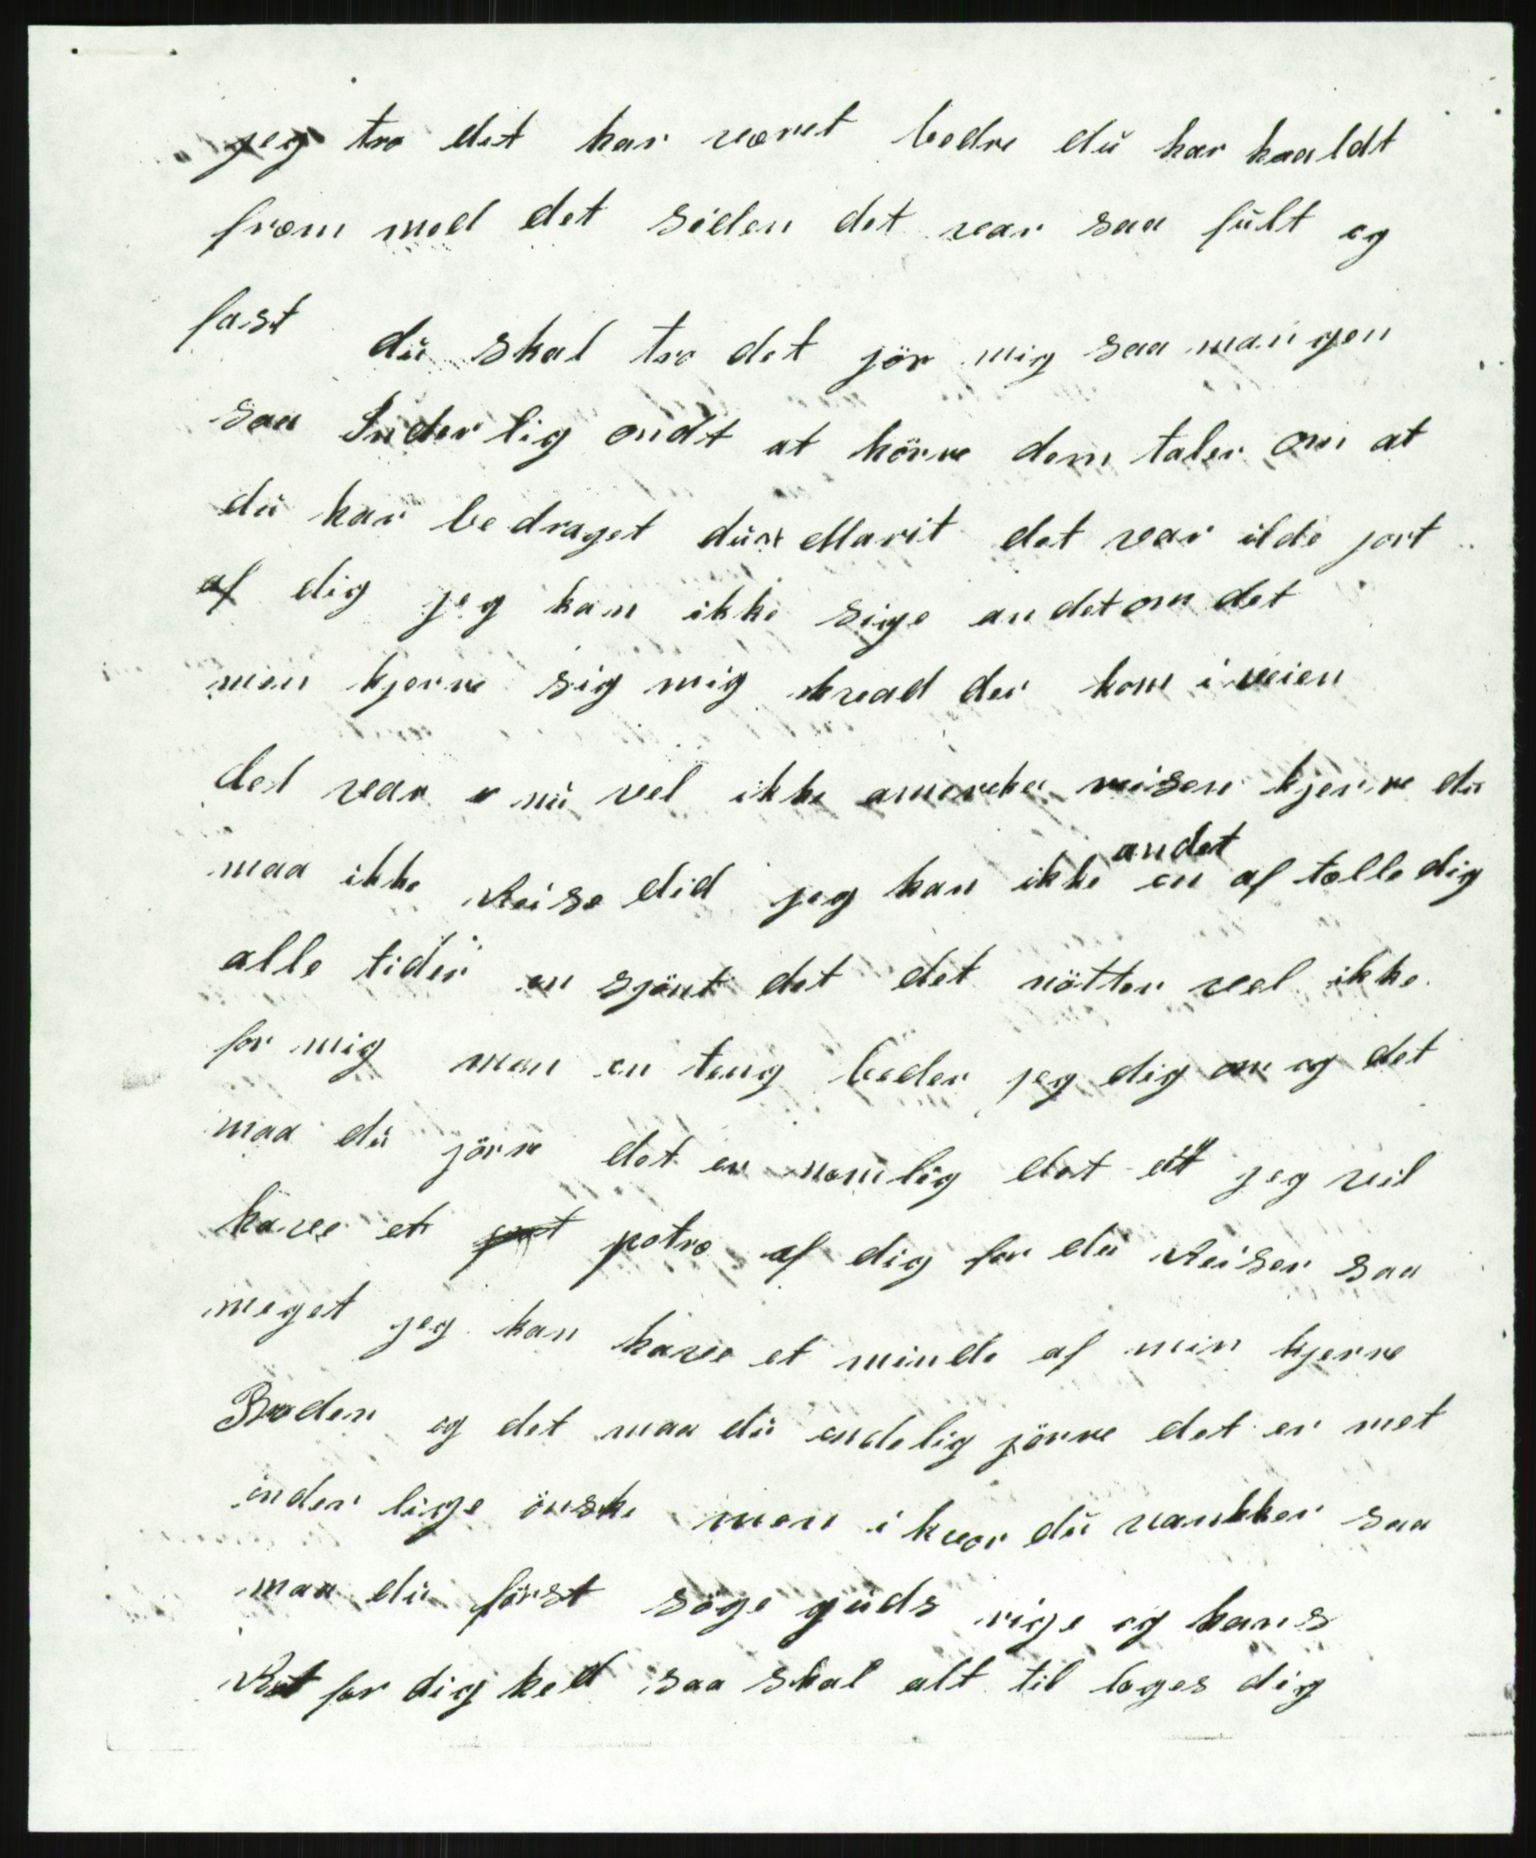 jeg tro det har været bedre du har haaldt
fræm med det siden det var saa fult og
fast du skal tro det jör mig saa mangen
saa Inderlig ondt at hörre dem taler om at
du har bedraget dün Marit det var ilde jort
af dig jeg kan ikke sige andet om det
men kjerre sig mig hvad der kom i veien
det var nü vel ikke amereka reisen kjerre du
maa ikke Reise did jeg kan ikke andet en af tælle dig
alle tider en sjönt det det nötter vel ikke
for mig men en teng beder jeg dig om og det
maa dü jörre det er nemlig det at jeg vil
have et potræ af dig før dü Reiser saa
meget jeg kan have et minde af min kjerre
Broder og det maa dü endelig jörre det er met
inderlige önske men i hvor dü vankker saa
maa dü först söge güds rige og hans
Retfærdighed saa skal alt til læges dig